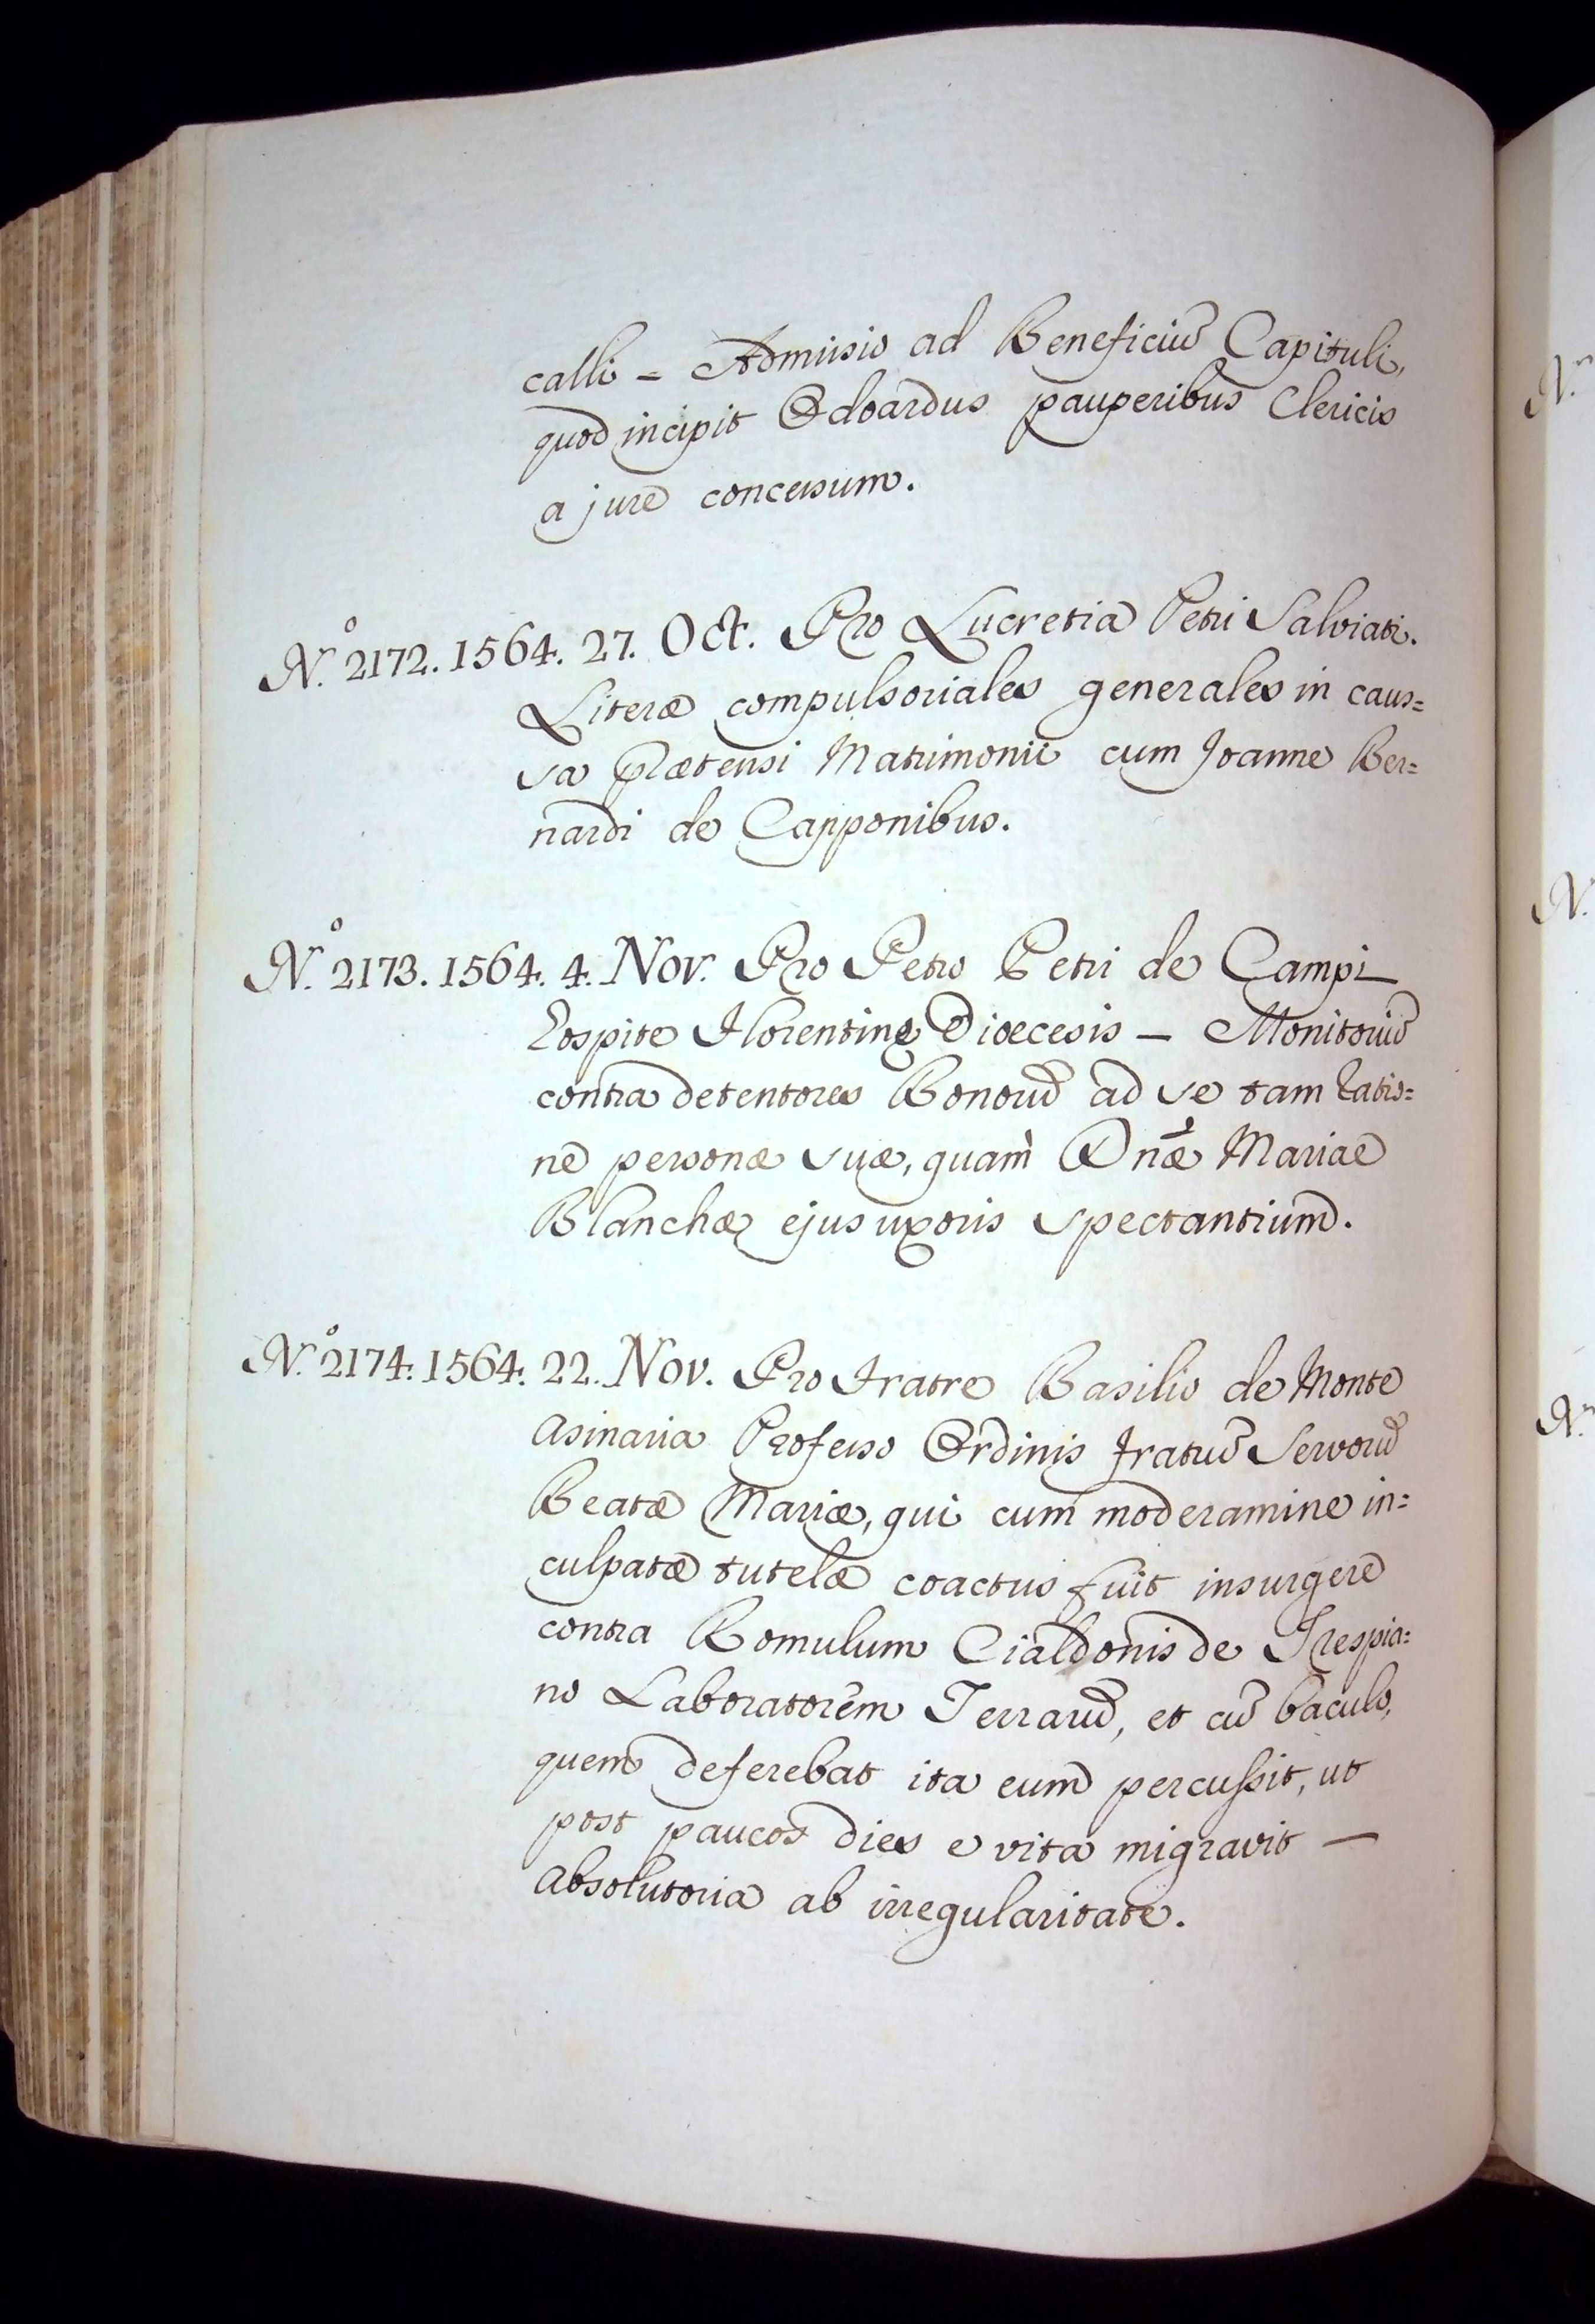 calli = Admissio ad Beneficiū Capituli,
quod incipit Odoardus pauperibus Clericis
a jure concessum.
N.º 2172. 1564. 27. Oct. Pro Lucretia Petri Salviati.
Literæ compulsoriales generales in caus=
sa prætensi Matrimonii cum Joanne Ber=
nardi de Capponibus.
N.º 2173. 1564. 4. Nov. Pro Petro Petri de Campi
Hospite Florentinę Dioecesis — Monitoriū
contra detentores Bonorū ad se tam ratio=
ne personæ suæ, quam Dnæ Mariae
Blanchæ ejus uxoris spectantium.
N.º 2174. 1564. 22. Nov. Pro Fratre Basilio de Monte
Asinaria Professo Ordinis Fratrū Servorū
Beatæ Mariæ, qui cum moderamine in=
culpatæ tutelæ coactus fuit insurgere
contra Romulum Cialdonis de Trespia=
no Laboratorem Terrarū, et cū baculo,
quem deferebat ita eum percussit, ut
post paucos dies e vita migravit —
Absolutoria ab irregularitate.
N.
N.
N.